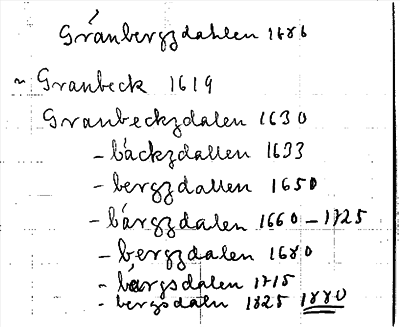 Gránbergzdahlen 1686
~ Granbeck 1619
Granbeckzdalen 1630
- báckzdallen 1633
- bergzdallen 1650
- bárgzdalen 1660 - 1725
- bergzdalen 1680
- bärgsdalen 1715
- bergsdaln 1825 1880